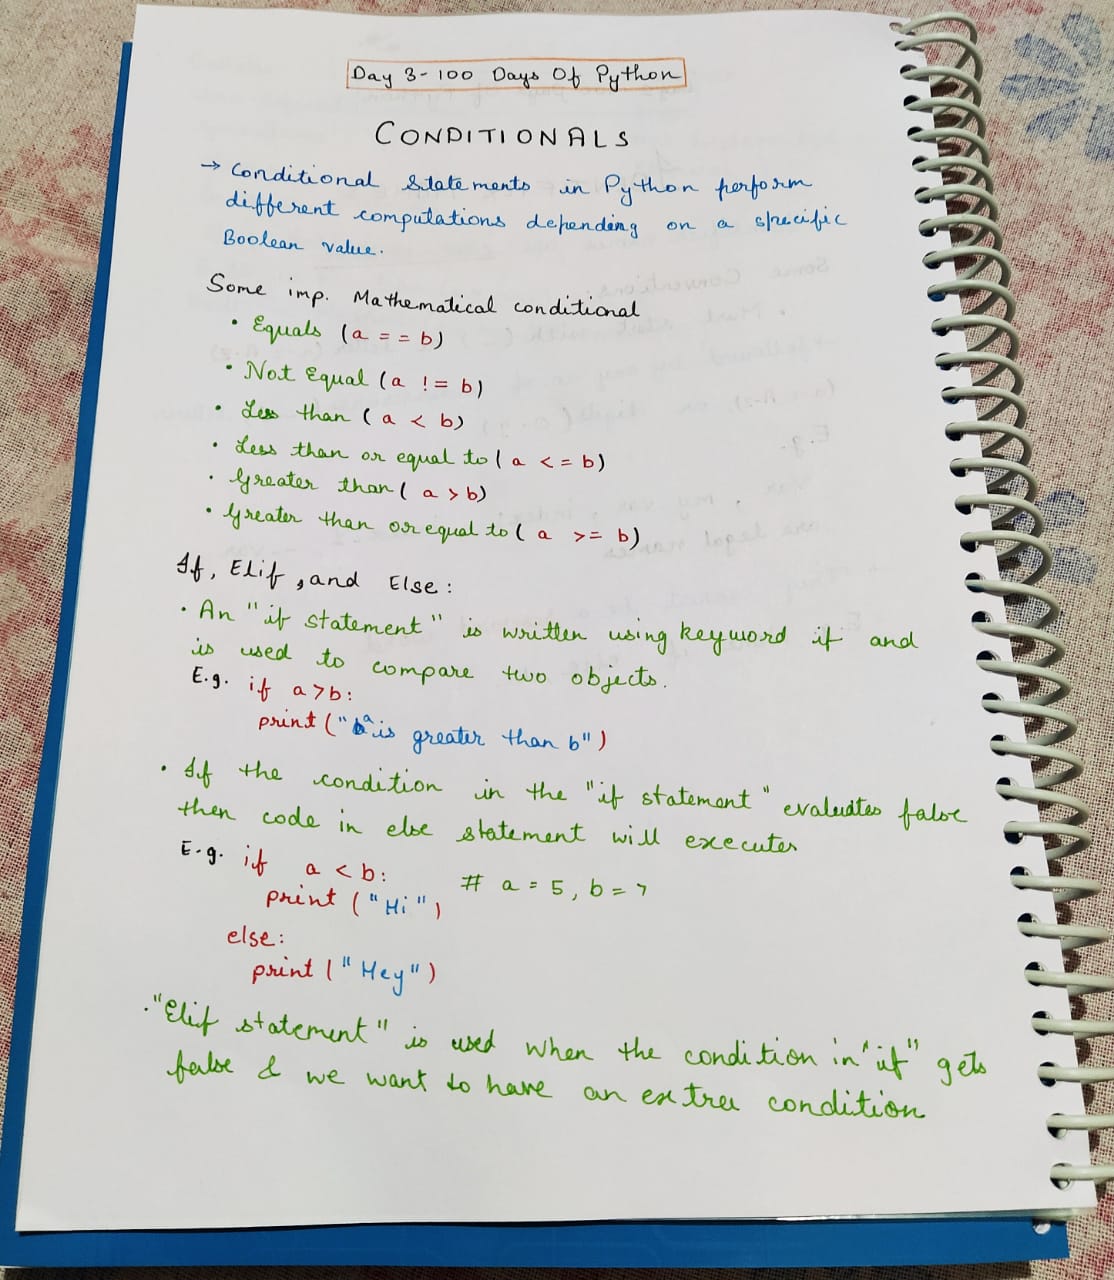 Day 3-100 Days Of Python
CONDITIONALS
→ Conditional Statements in Python perform
different computations depending on a specific
Boolean value.
Some imp. Mathematical conditional
• Equals (a == b)
• Not Equal (a != b)
• Less than (a < b)
• Less than or equal to (a <= b)
• Greater than (a > b)
• Greater than or equal to (a >= b)
If, Elif, and Else:
• An "if statement" is written using keyword if and
is used to compare two objects.
E.g. if a>b:
print("a is greater than b")
• If the condition in the "if statement" evaluates false
then code in else statement will executes
E.g. if a < b: # a = 5, b = 7
print ("Hi")
else:
print ("Hey")
• "Elif statement" is used when the condition in "if" gets
false & we want to have an extra condition